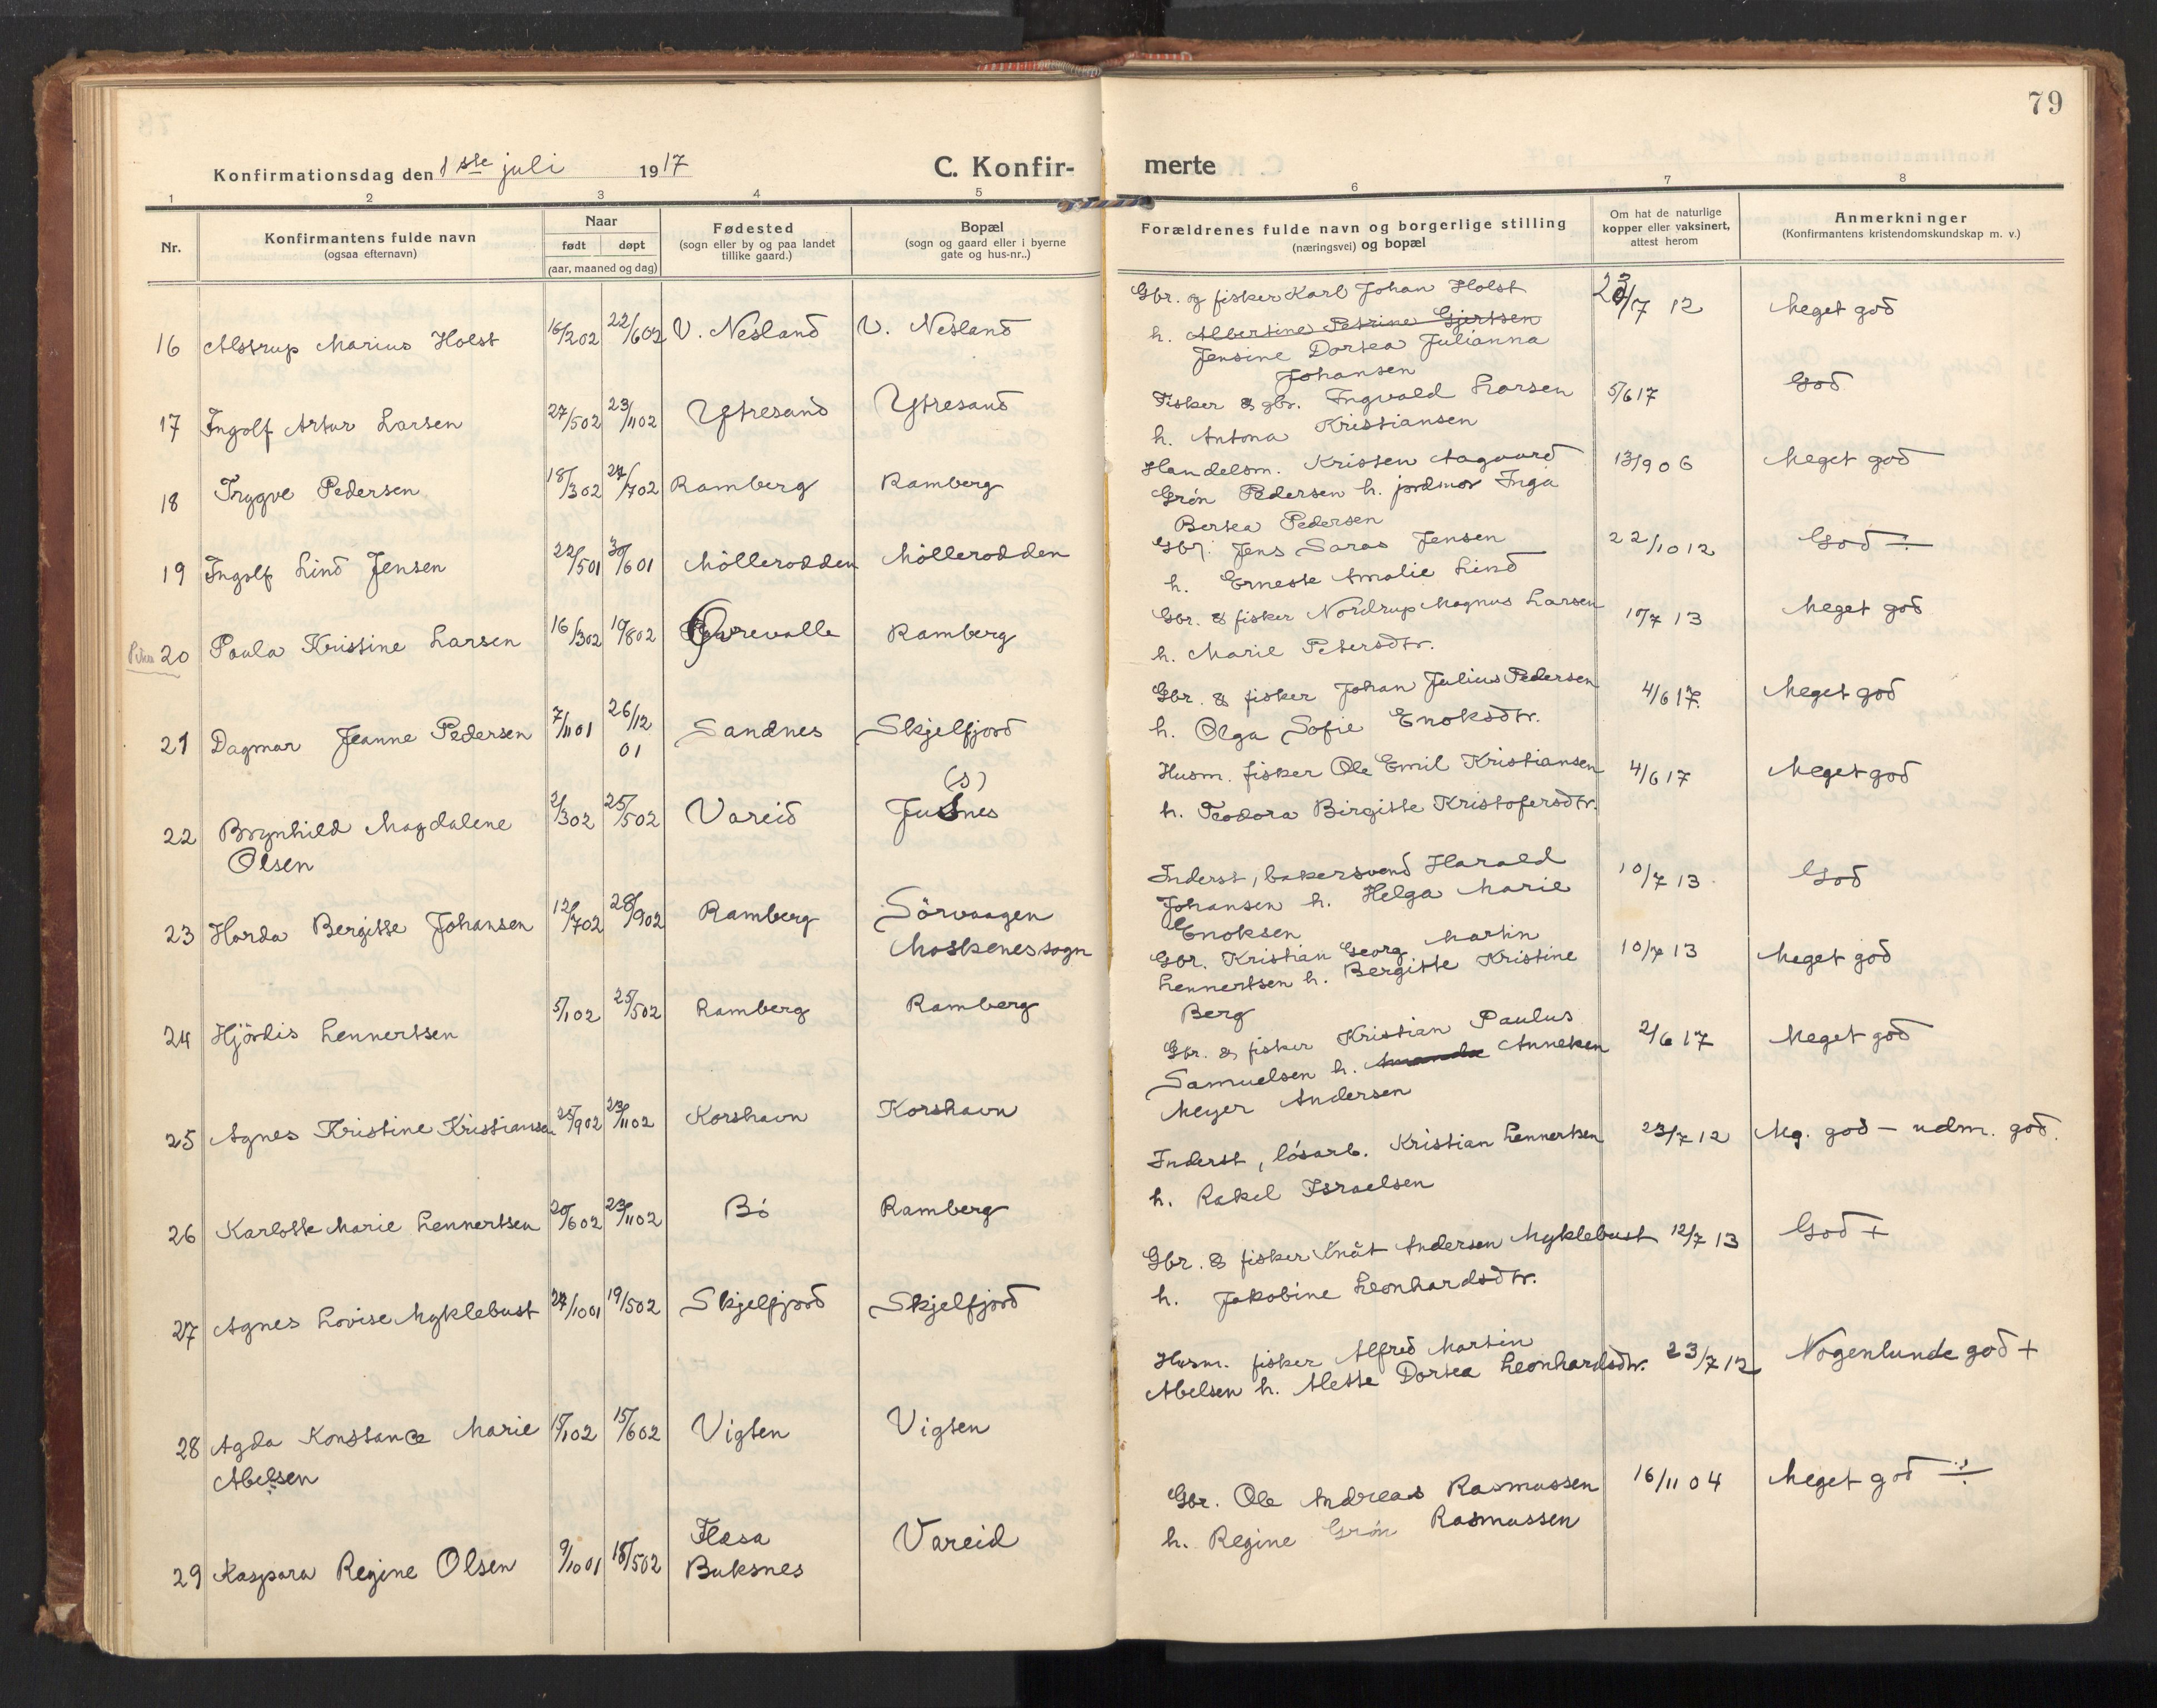 79
Konfirmationsdag den 1ste juli 1917
C. Konfirmerte
1 2 3 4 5 6 7 8
Nr.
Konfirmantens fulde navn
(ogsaa efternavn)
Naar
født døpt
(aar, maaned og dag)
Fødested
(sogn eller by og paa landet
tillike gaard.)
Bopæl
(sogn og gaard eller i byerne
gate og hus-nr..)
Forældrenes fulde navn og borgerlige stilling
(næringsvei) og bopæl
Om hat de naturlige
kopper eller vaksinert,
attest herom
Anmerkninger
(Konfirmantens kristendomskundskap m. v.)
16 Alstrup Marius Holst 16/2 02 22/6 02 V. Nesland V. Nesland
Gbr. og fisker Karl Johan Holst 23/7 12 Meget god
h. Albertine Petrine Gjertsen
Jensine Dortea Julianna
Johansen
17 Ingolf Artur Larsen 27/5 02 23/11 02 Ytresand Ytresand
Fisker & gbr. Ingvald Larsen 5/6 17 God
h. Antona Kristiansen
18 Trygve Pedersen 18/3 02 27/7 02 Ramberg Ramberg
Handelsm. Kristen Aagaard 13/9 06 Meget god
Grön Pedersen h. jordmor Inga
Bertea Pedersen
19 Ingolf Lind Jensen 22/5 01 30/6 01 Möllerodden Möllerodden
Gbr. Jens Saras Jensen 22/10 12 God ÷
h. Erneste Amalie Lind
20 Paula Kristine Larsen 16/3 02 19/8 02 Övrevalle Ramberg
Gbr. & fisker Nordrup Magnus Larsen 10/7 13 Meget god
h. Marie Petersdtr.
21 Dagmar Jeanne Pedersen 7/11 01 26/12 01 Sandnes Skjelfjord
Gbr. & fisker Johan Julius Pedersen 4/6 17. Meget god
h. Olga Sofie Enoksdtr.
22 Brynhild Magdalene 2/3 02 25/5 02 Vareid Jusnes (s)
Olsen
Husm. fisker Ole Emil Kristiansen 4/6 17 Meget god
h. Teodora Birgitte Kristofersdtr.
23 Harda Bergitte Johansen 12/7 02 28/9 02 Ramberg Sörvaagen
Moskenes sogn
Inderst, bakersvend Harald 10/7 13 God
Johansen h. Helga Marie
Enoksen
24 Hjördis Lennertsen 5/1 02 25/5 02 Ramberg Ramberg
Gbr. Kristian Georg Martin 10/7 13 Meget god
Lennertsen h. Bergitte Kristine
Berg
25 Agnes Kristine Kristiansen 25/9 02 23/11 02 Korshavn Korshavn
Gbr. & fisker Kristian Paulus 2/6 17 Meget god
Samuelsen h. Amanda Anneken
Meyer Andersen
26 Karlotte Marie Lennertsen 20/6 02 23/11 02 Bö Ramberg
Inderst, lösarb. Kristian Lennertsen 23/7 12 Mg. god - udm. god.
h. Rakel Israelsen
27 Agnes Lovise Myklebust 27/10 01 19/5 02 Skjelfjord Skjelfjord
Gbr. & fisker Knut Andersen Myklebust 12/7 13 God +
h. Jakobine Leonhardsdtr.
28 Agda Konstance Marie 15/1 02 15/6 02 Vigten Vigten
Abelsen
Husm. fisker Alfred Martin 23/7 12 Nogenlunde god +
Abelsen h. Alette Dortea Leonhardsdtr.
29 Kaspara Regine Olsen 9/10 01 18/5 02 Flæsa Vareid
Buksnes
Gbr. Ole Andreas Rasmussen 16/11 04 Meget god ÷
h. Regine Grön Rasmussen